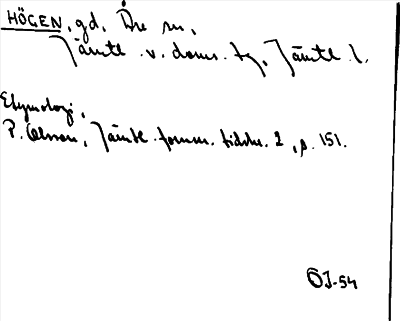 HÖGEN, gd, Åre sn,
Jämtl. v. doms. tg, Jämtl. l.
Etymologi,
P. Olsson, Jämtl. fornm. tidskr. 2, s. 151.
ÖJ-54